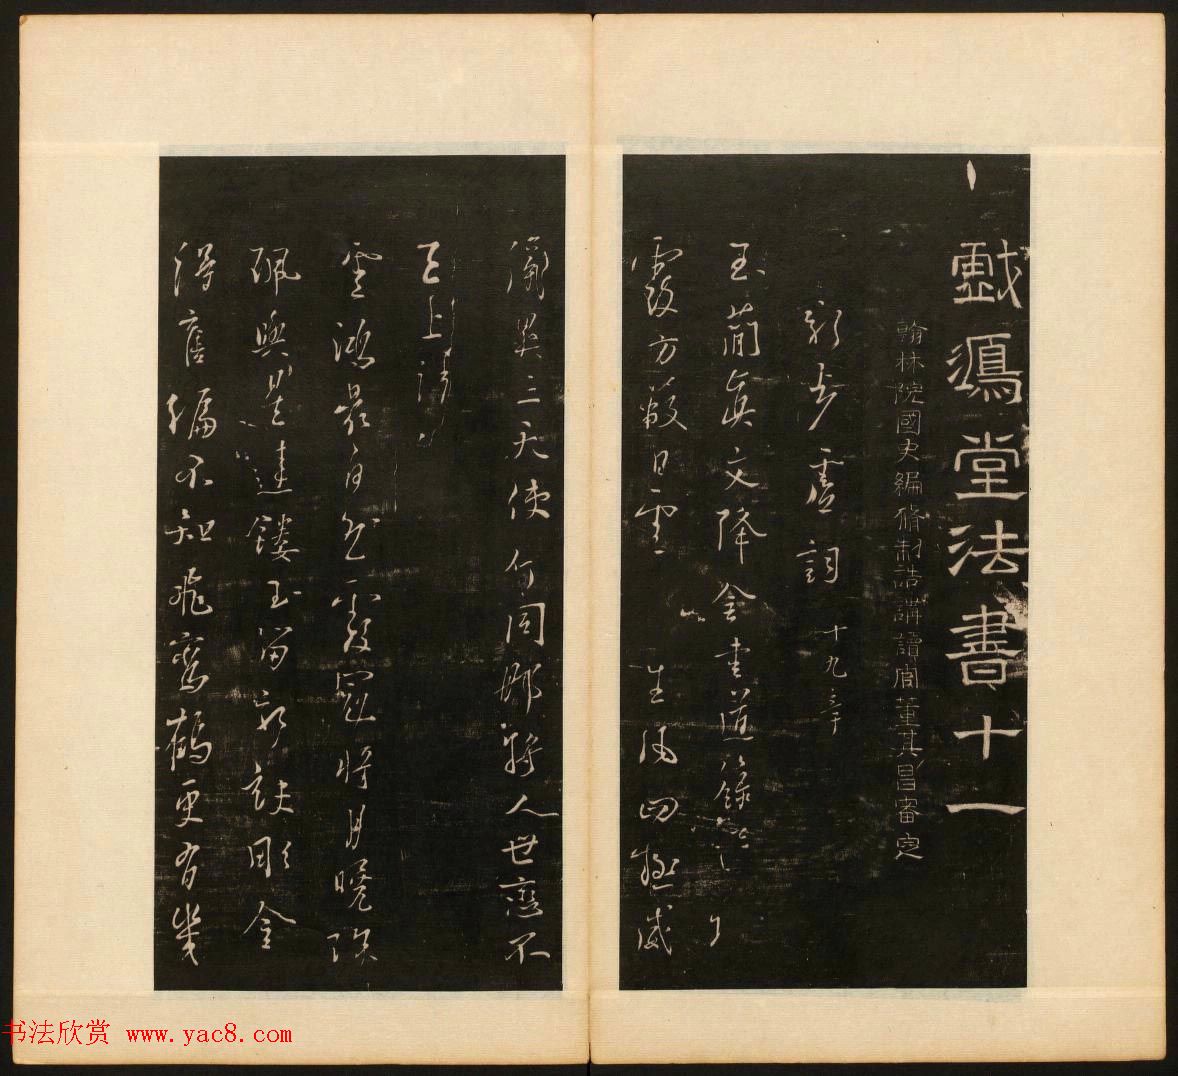 戲鴻堂法書十一
翰林院國史編脩制誥講讀官董其昌審定
新步虛詞十九章
玉簡真文降金書道籙
霞方蔽日雲生風四極威
儀異三天使命同那將人世戀不
上清
雲鴻最自然霞冠將月曉珠
珮與星連鏤玉留新訣彫金
得舊編不知飛鸞鶴更有幾
书法欣赏 www.yac8.com